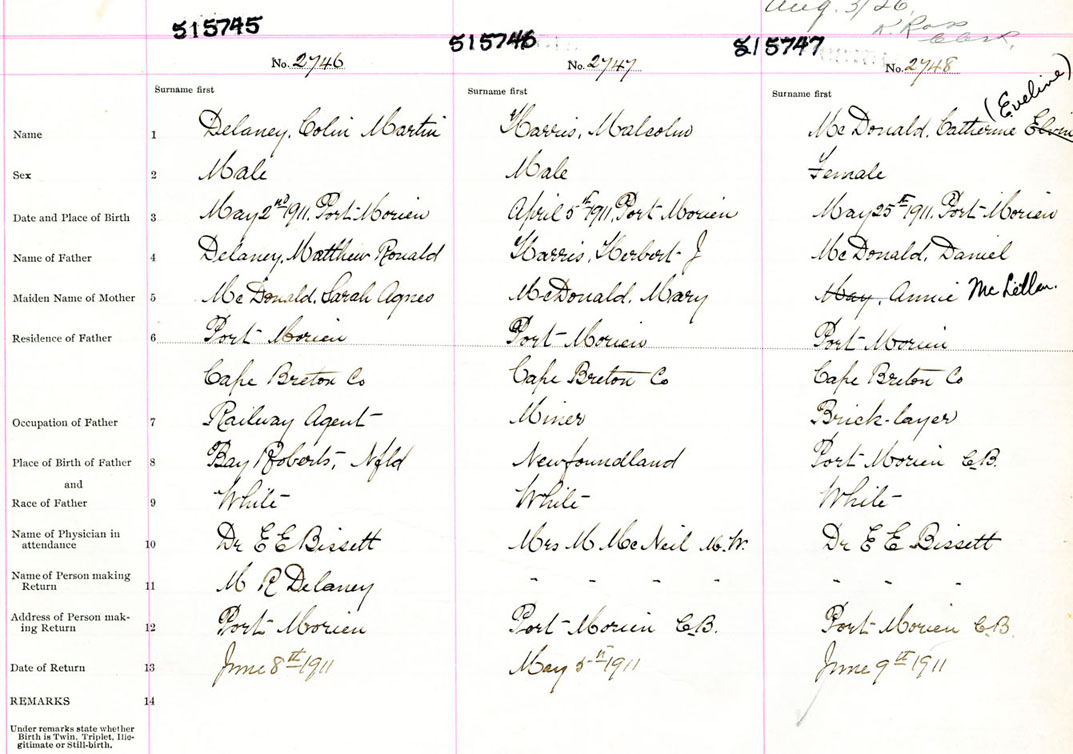 Aug. 3/26.
K. Ross
Clerk.
515745 515746 515747
No. 2746 No. 2747 No. 2748
Surname first Surname first Surname first
(Eveline)
Name 1 Delaney, Colin Martin Harris, Malcolm McDonald, Catherine
Sex 2 Male Male Female
Date and Place of Birth 3 May 2nd 1911, Port Morien April 5th 1911, Port Morien May 25th 1911, Port Morien
Name of Father 4 Delaney, Matthew Ronald Harris, Herbert J McDonald, Daniel
Maiden Name of Mother 5 McDonald, Sarah Agnes McDonald, Mary May, Annie McLellan.
Residence of Father 6 Port Morien Port Morien Port Morien
Cape Breton Co Cape Breton Co Cape Breton Co
Occupation of Father 7 Railway Agent Miner Brick-layer
Place of Birth of Father 8 Bay Roberts, Nfld Newfoundland Port Morien C.B.
and
Race of Father 9 White White White
Name of Physician in
attendance 10 Dr E E Bissett Mrs M McNeil M.W. Dr E E Bissett
Name of Person making
Return 11 M R Delaney " " " " " " "
Address of Person mak-
ing Return 12 Port Morien Port Morien C.B. Port Morien C.B.
Date of Return 13 June 8th 1911 May 5th 1911 June 9th 1911
REMARKS 14
Under remarks state whether
Birth is Twin, Triplet, Ille-
gitimate or Still-birth.